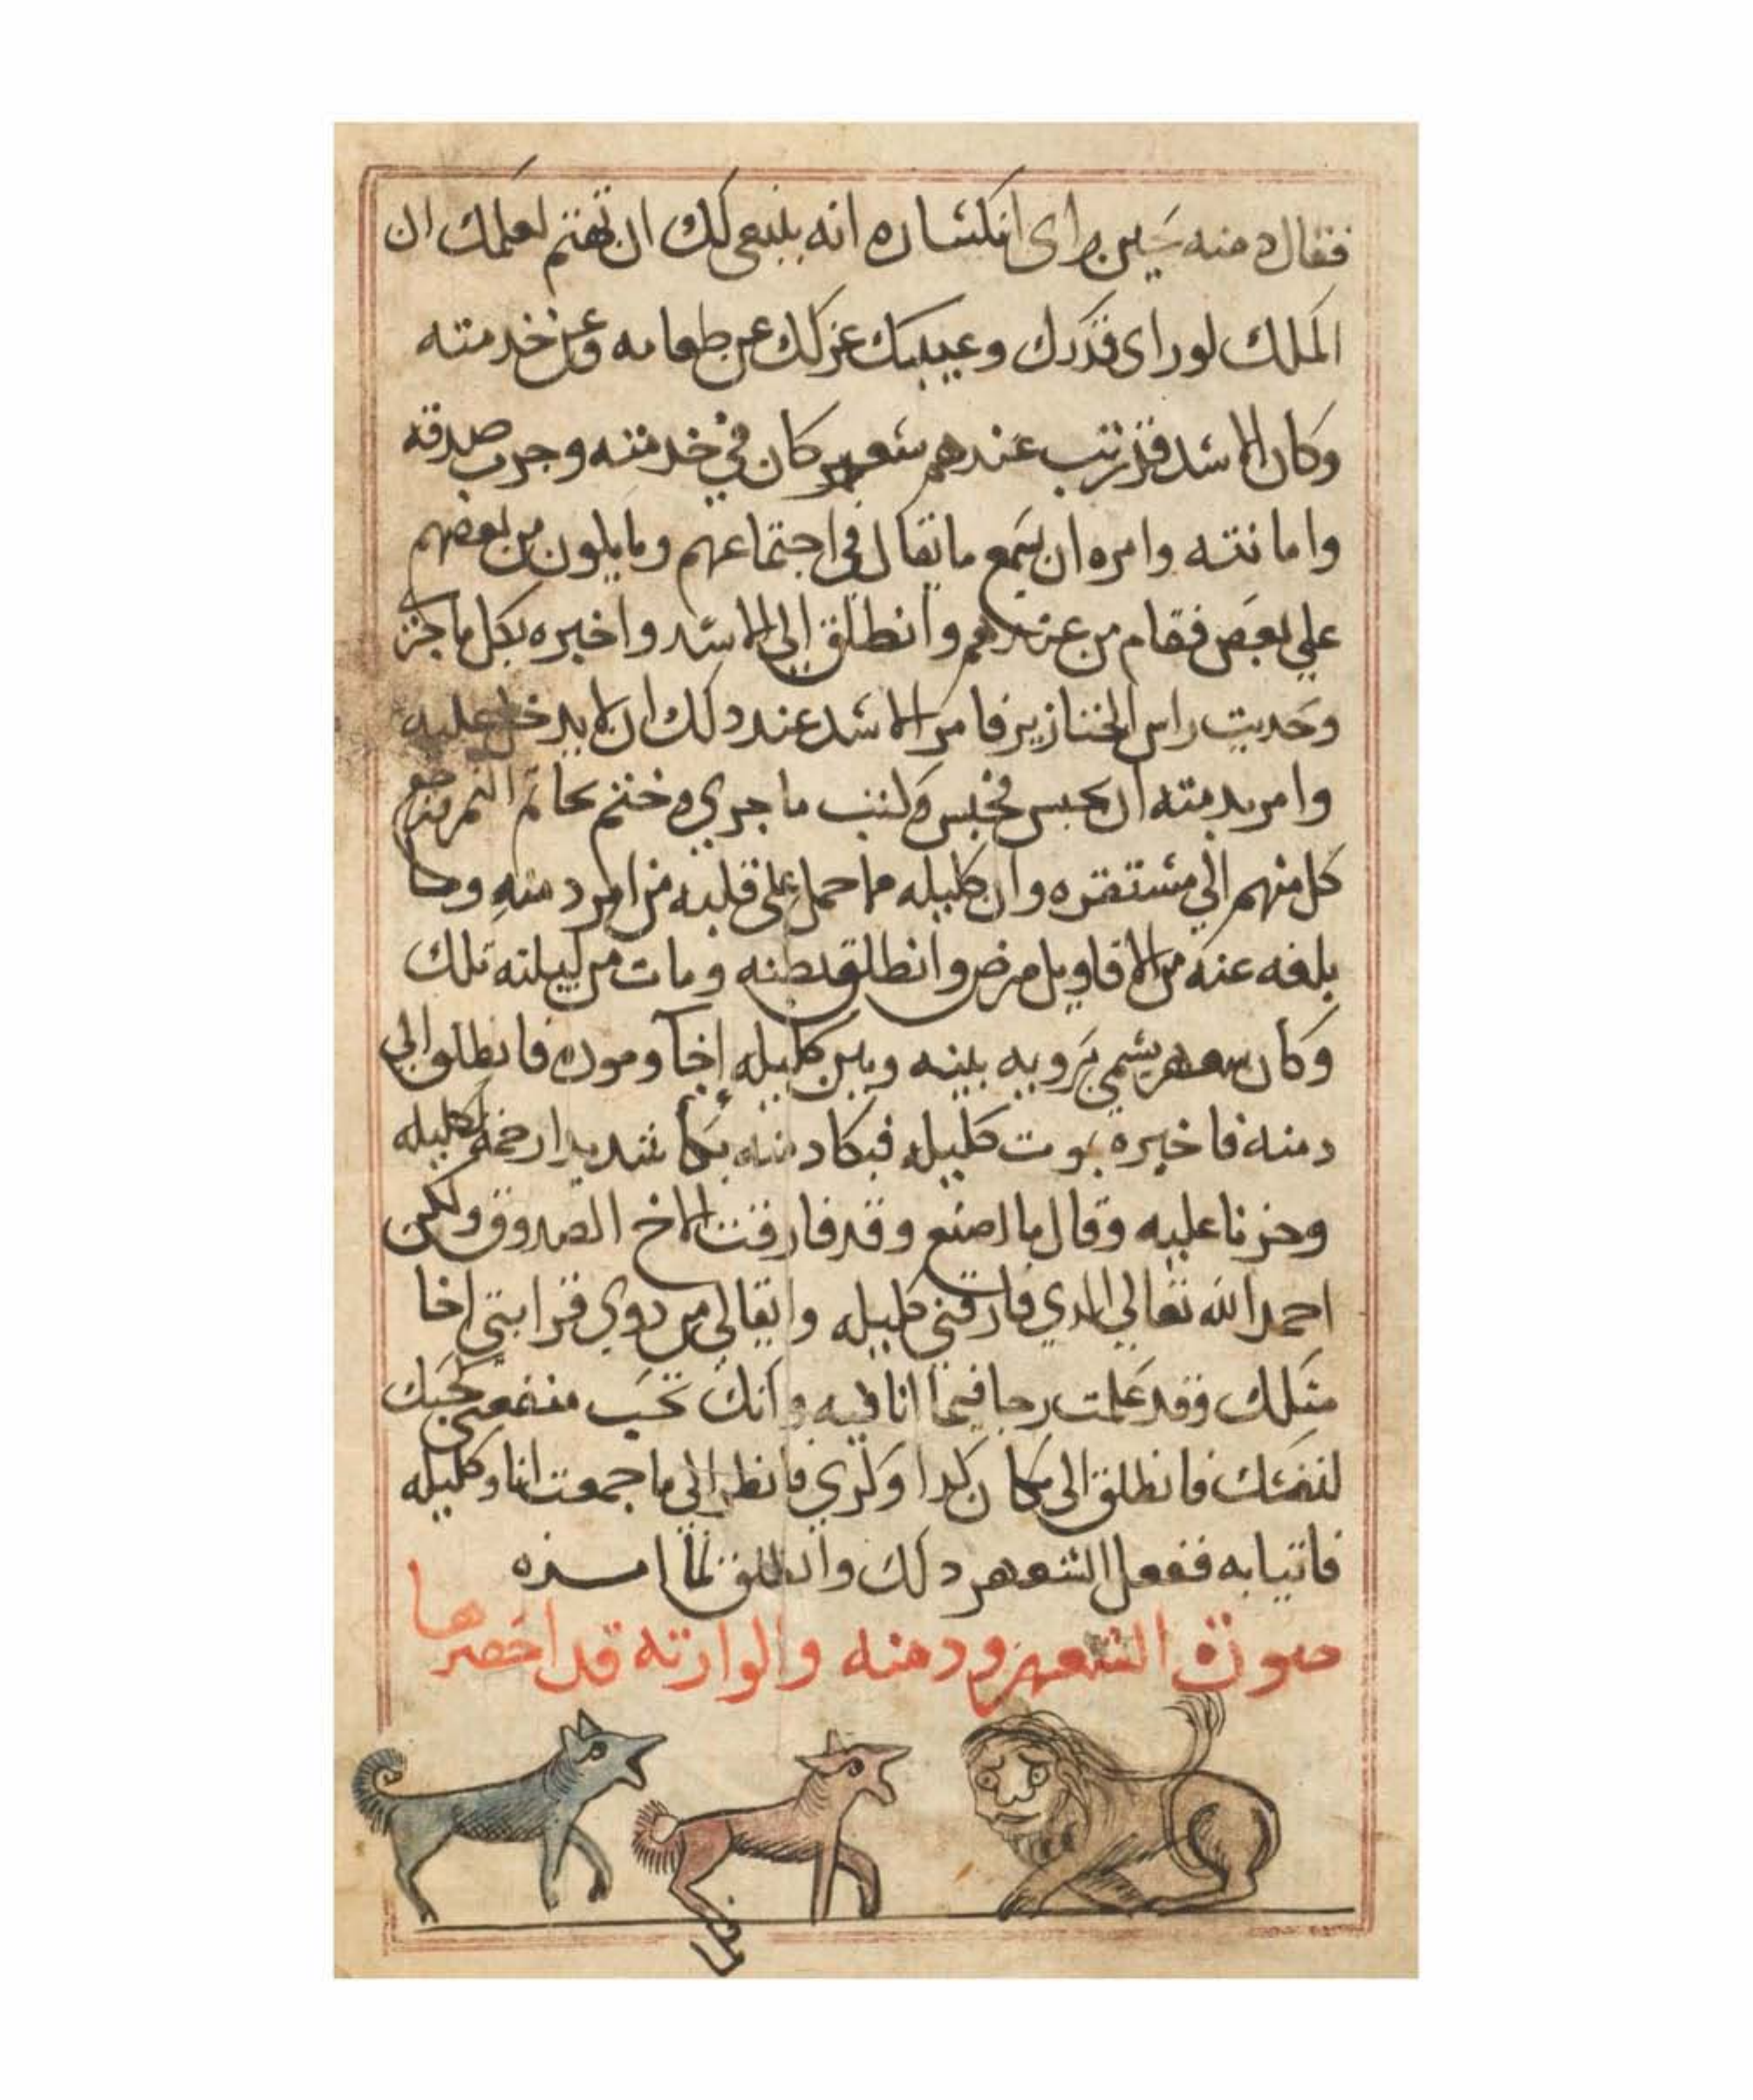 فقال دمنه حين راى انكساره انه ينبغي لك ان تهتم لعلمك ان
الملك لو راى قذرك وعيبك عزلك عن طعامه وعن خدمته
وكان الاسد قد رتب عندهم شعهر كان في خدمته وجرب صدقه
وامانته وامره ان يسمع ما يقال في اجتماعهم وما يكون من بعضهم
علي بعض فقام من عندهم وانطلق الي الاسد واخبره بكل ما جرى
وحديت راس الخنازير فامر الاسد عند دلك ان لا يدخل عليه
وامر بدمنه ان يحبس فحبس وكتب ما جري وختم بخاتم النمر فرجع
كل منهم الي مستقره وان كليله مما حمل على قلبه من امر دمنه وما
بلغه عنه من الاقاويل مرض وانطلق بطنه ومات من ليلته تلك
وكان شعهر يسمي روبه بينه وبين كليله إخا ومودة فانطلق الي
دمنه فاخبره بموت كليله فبكا دمنه بكا شديدا رحمة لكليله
وحزنا عليه وقال ما اصنع وقد فارقت الاخ الصدوق ولكن
احمد الله تعالي الدي فارقني كليله وابقالي من دوي قرابتي اخا
متلك وقد علمت رجا فيما انا فيه وانك تحب منفعتي كحبك
لنفسك فانطلق الى مكان كدا وكدي فانظر الي ما جمعت انا وكليله
فاتيا به ففعل الشعهر دلك وانطلق لما امره
صورة الشعهر ودمنه والوارته قد احضرها
فلما